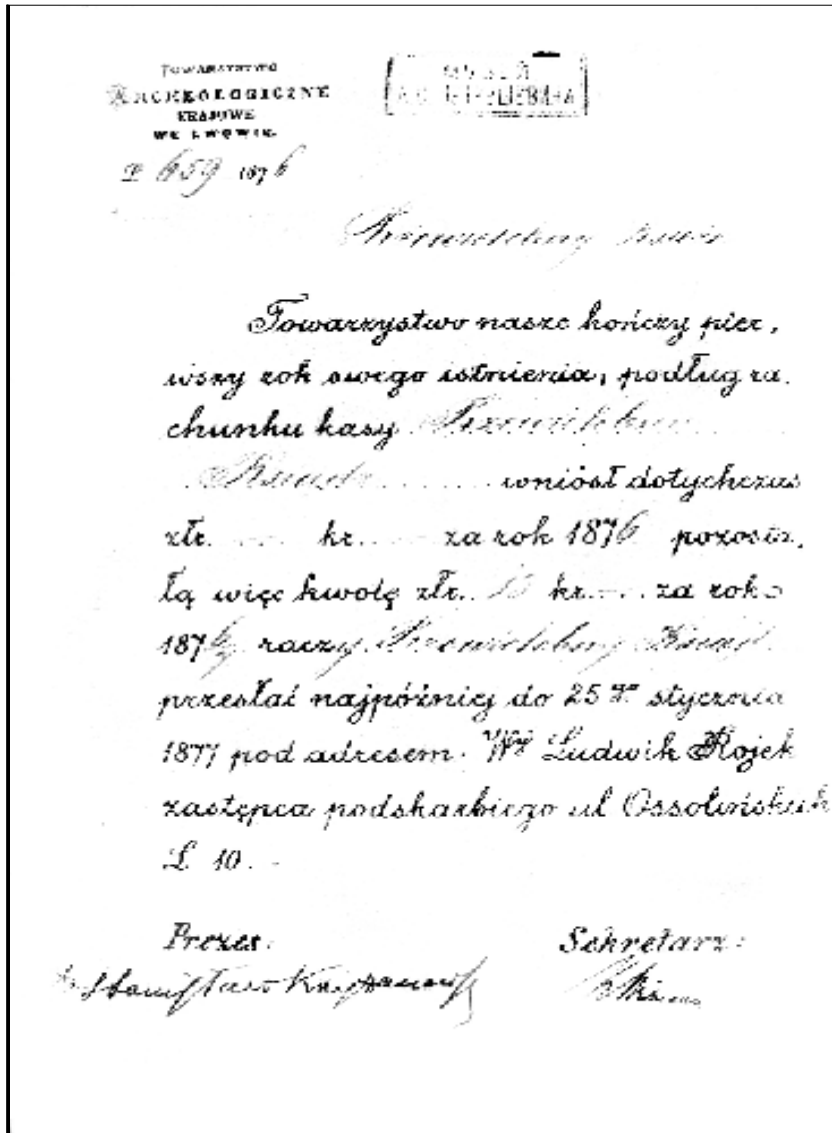 TOWARZYSTWO
ARCHEOLOGICZNE
KRAJOWE
WE LWOWIE.
L 659 1876
Przewielebny
Towarzystwo nasze kończy pier,
wszy rok swego istnienia, podług ra.
chunku kasy Przewielebny
wniósł dotychczas
złr. kr. za rok 1876 pozosta,
łą więc kwotę złr. kr. za rok
1876/7 raczy Przewielebny Ksiądz
przesłać najpóźniej do 25 stycznia
1877 pod adresem. Wny Ludwik Rojek
zastępca podskarbiego ul Ossolińskich
L 10. -
Prezes: Sekretarz:
Stanisław